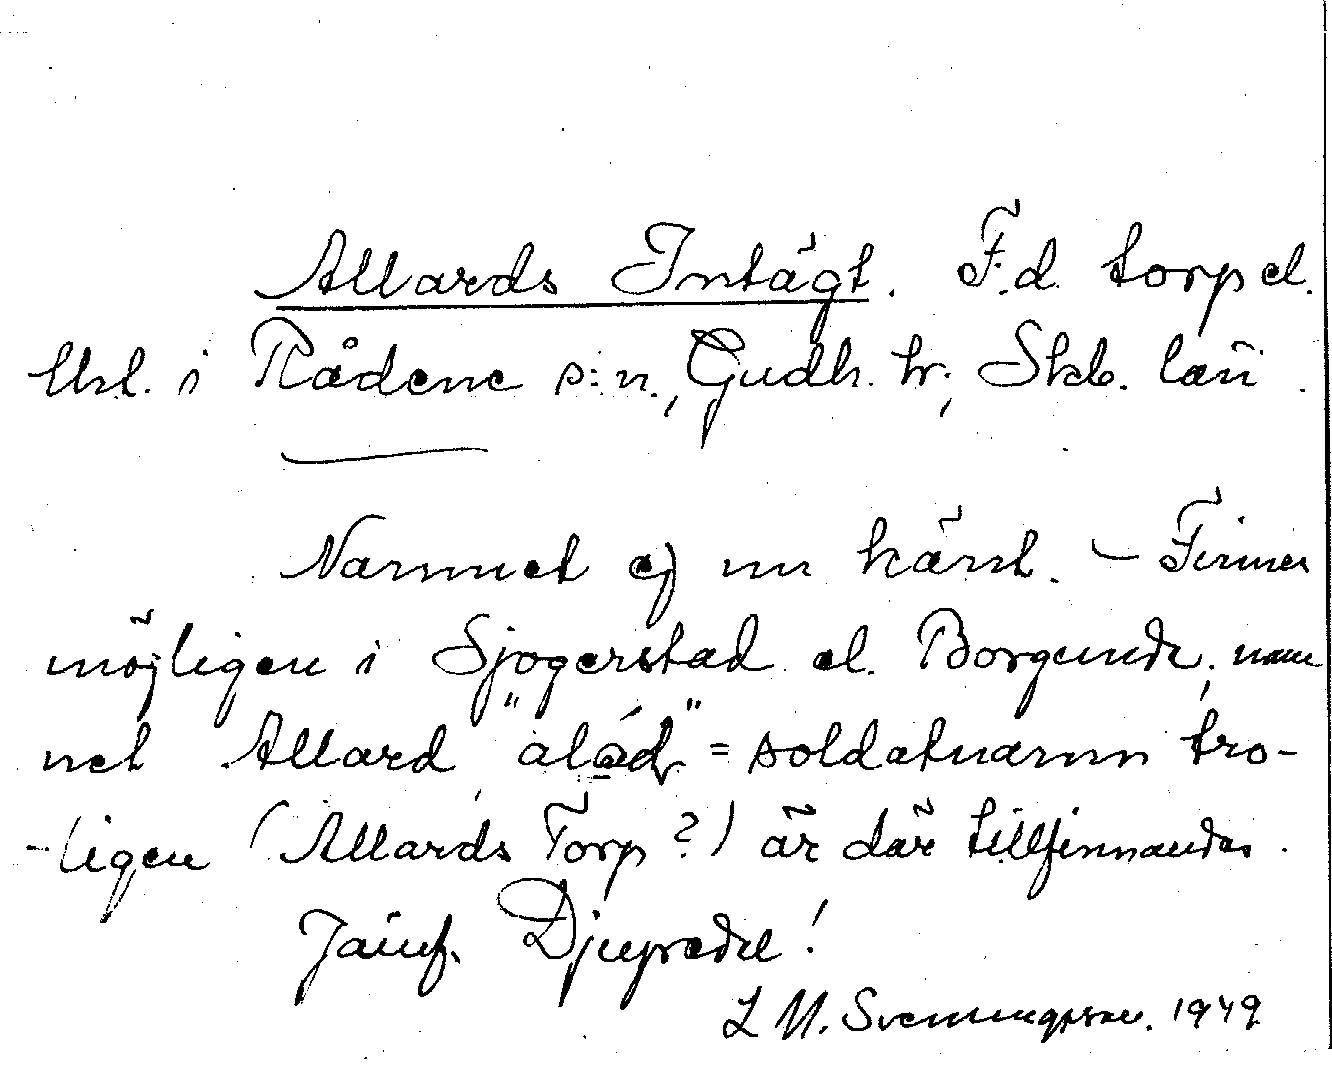 Allards Intägt. F.d. torp el.
lhl. i Rådene s:n., Gudh. hr; Skb. län.
Namnet ej nu känt. – Finnes
möjligen i Sjogerstad el. Borgunda, nam
net Allard, "alád" = soldatnamn tro-
-ligen (Allards Torp?) är där tillfinnandes.
Jämf. Djupradal!
L M. Svenungsson. 1949